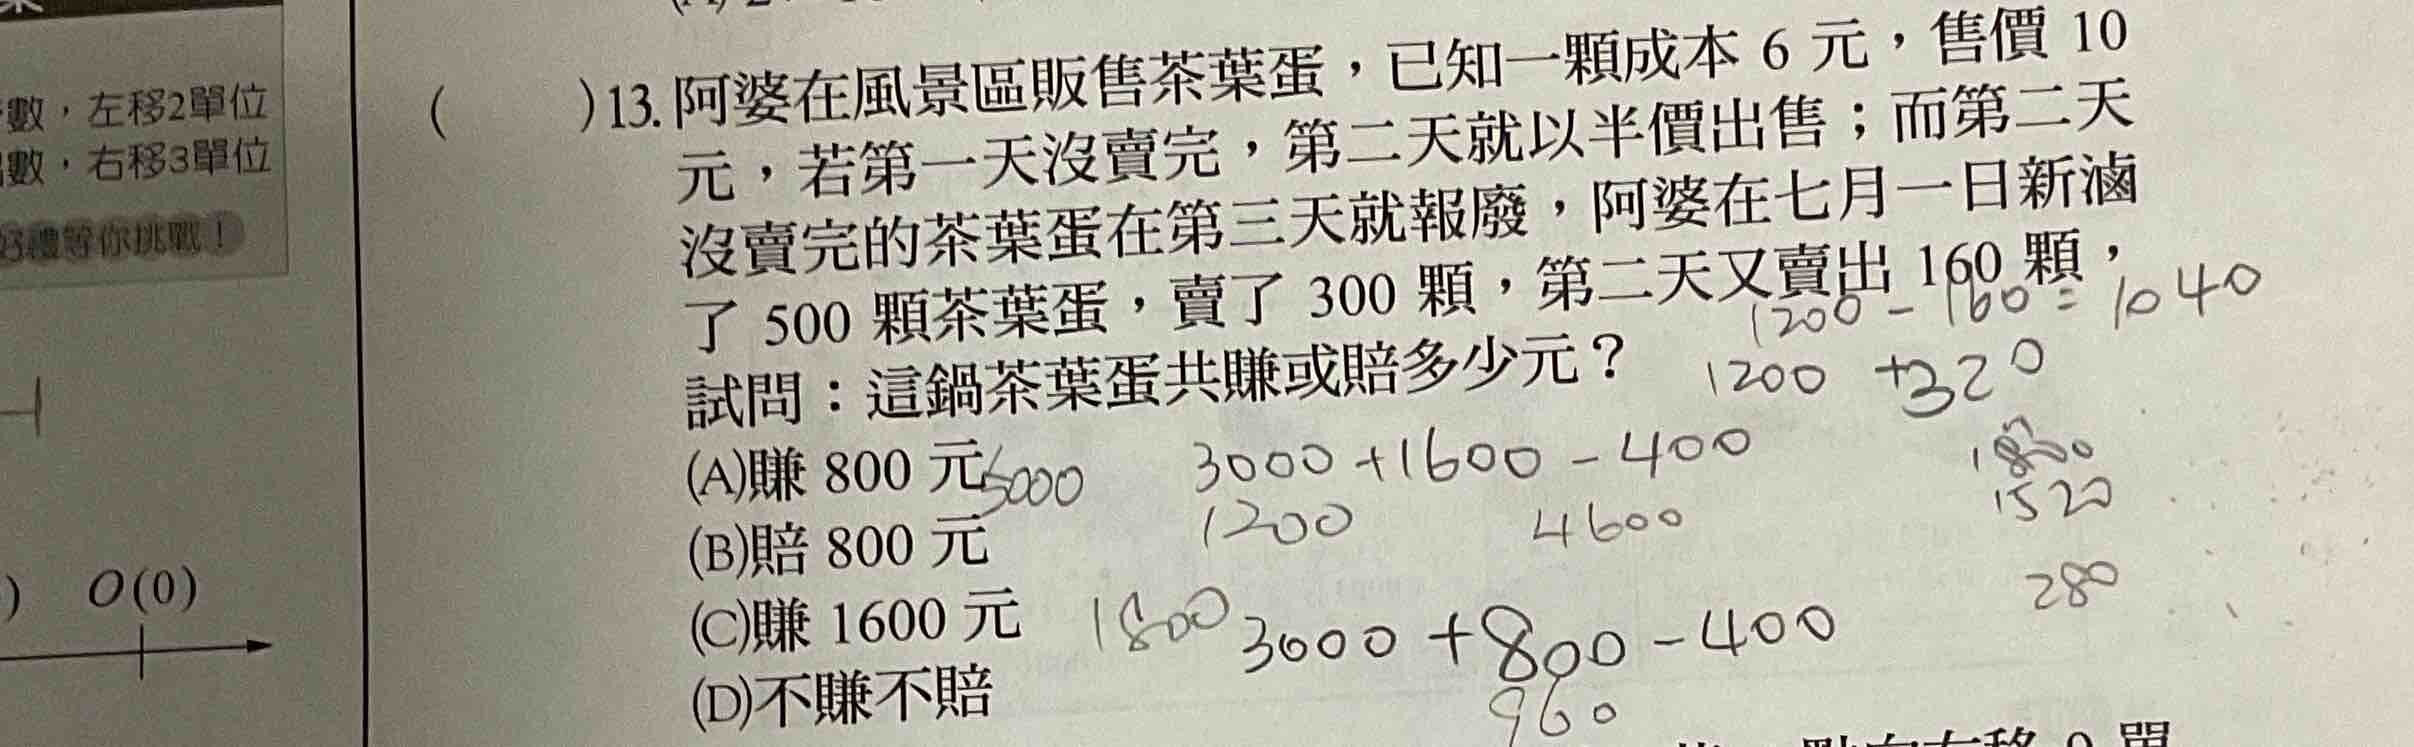 數，左移2單位
數，右移3單位
好禮等你挑戰！
O(0)
( )13. 阿婆在風景區販售茶葉蛋，已知一顆成本 6 元，售價 10
元，若第一天沒賣完，第二天就以半價出售；而第二天
沒賣完的茶葉蛋在第三天就報廢，阿婆在七月一日新滷
了 500 顆茶葉蛋，賣了 300 顆，第二天又賣出 160 顆，
1200 - 160 = 1040
試問：這鍋茶葉蛋共賺或賠多少元？
1200 +320
(A)賺 800 元
5000
3000 +1600 - 400
1800
1520
(B)賠 800 元
1200
4600
280
(C)賺 1600 元
1800
3000 +800 - 400
960
(D)不賺不賠